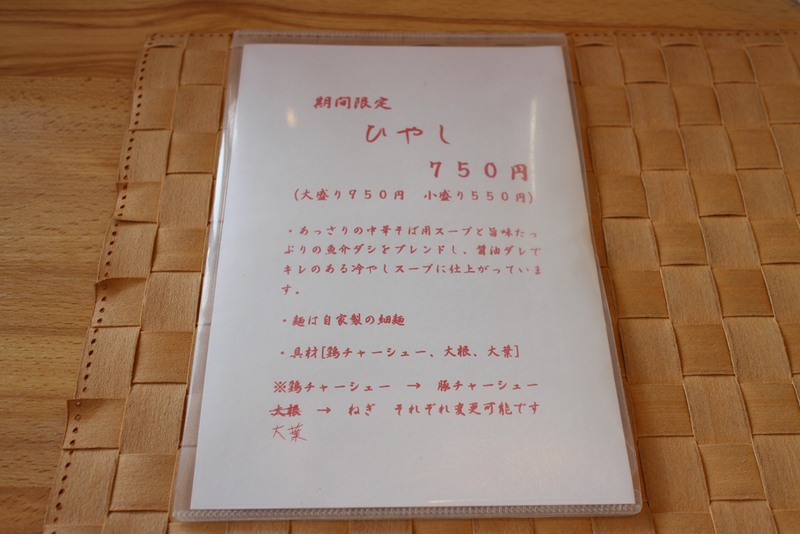 期間限定
ひやし
７５０円
(大盛り９５０円　小盛り５５０円)
・あっさりの中華そば用スープと旨味たっ
ぷりの魚介ダシをブレンドし、醤油ダレで
キレのある冷やしスープに仕上がっていま
す。
・麺は自家製の細麺
・具材[鶏チャーシュー、大根、大葉]
※鶏チャーシュー　→　豚チャーシュー
大根　→　ねぎ　それぞれ変更可能です
大葉